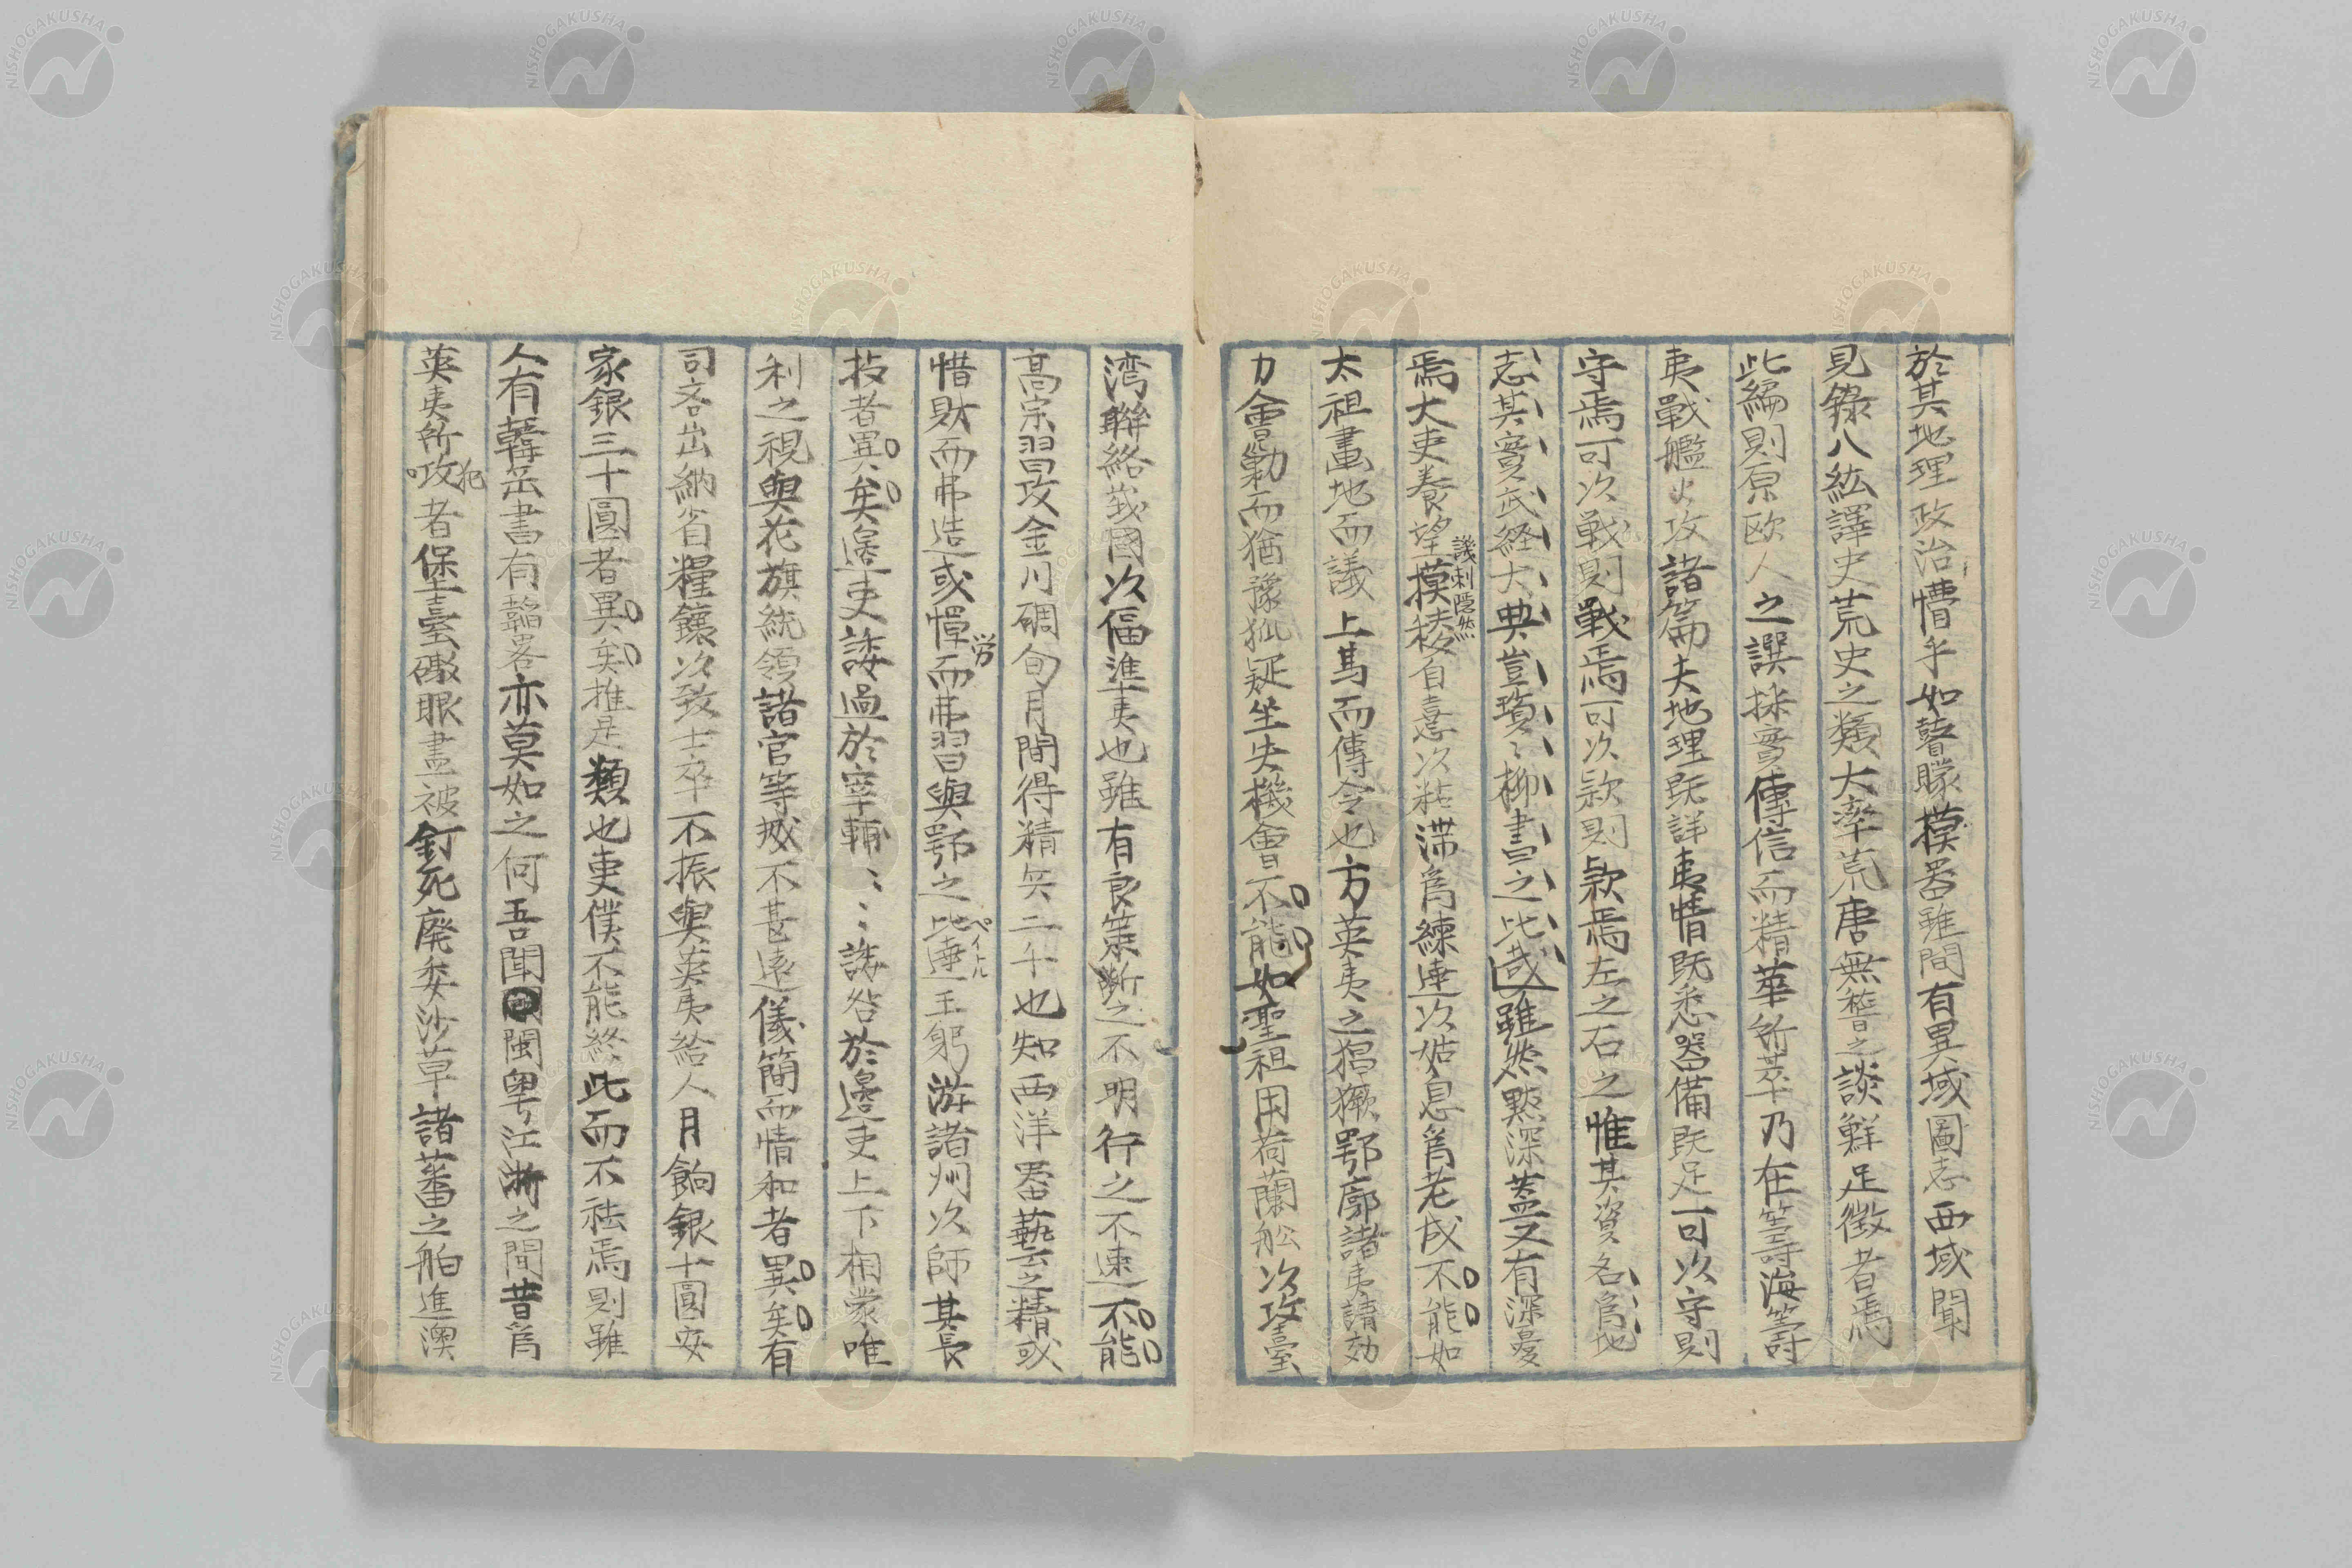 於其地理政治懵乎如瞽矇摸器雖間有異域圖志西域聞
見錄八紘譯史荒史之類大率荒唐無稽之談鮮足徵者焉
此編則原歐人之譔採實傳信而精華所萃乃在籌海籌
夷戰艦火攻諸篇夫地理既詳夷情既悉器備既足可以守則
守焉可以戰則戰焉可以款則款焉左之右之惟其資名爲地
志其實武経大典豈瑣〻柳書之比或雖然黙深蓋又有深憂
焉大吏養望摸稜自喜以粘滯爲練達以姑息爲老成不能如
譏刺隠然
太祖畫地而議上馬而傳令也方英夷之猖獗鄂廓諸夷請効
力會勦而猶豫狐疑坐失機會不能如聖祖用荷蘭舩以攻臺
湾聯絡峩國以偪準夷也雖有良策断之不明行之不速不能
高宗習攻金川碉旬月間得精兵二千也知西洋器藝之精或
惜財而弗造或憚労而弗習與鄂之比達王躬游諸州以師其長
ペイトル
技者異矣邊吏諉過於宰輔〻〻〻諉咎於邊吏上下相蒙唯
利之視與花旗統領諸官等威不甚遠儀簡而情和者異矣有
司吝出納省糧饟以致士卒不振與英夷給人月餉銀十圓安
家銀三十圓者異矣推是類也吏僕不能終此而不袪焉則雖
人有韓岳書有韜畧亦莫如之何吾聞閩粤江浙之間昔爲
英夷所攻者堡臺礮眼盡被釘死廢委沙草諸蕃之舶進澳
犯